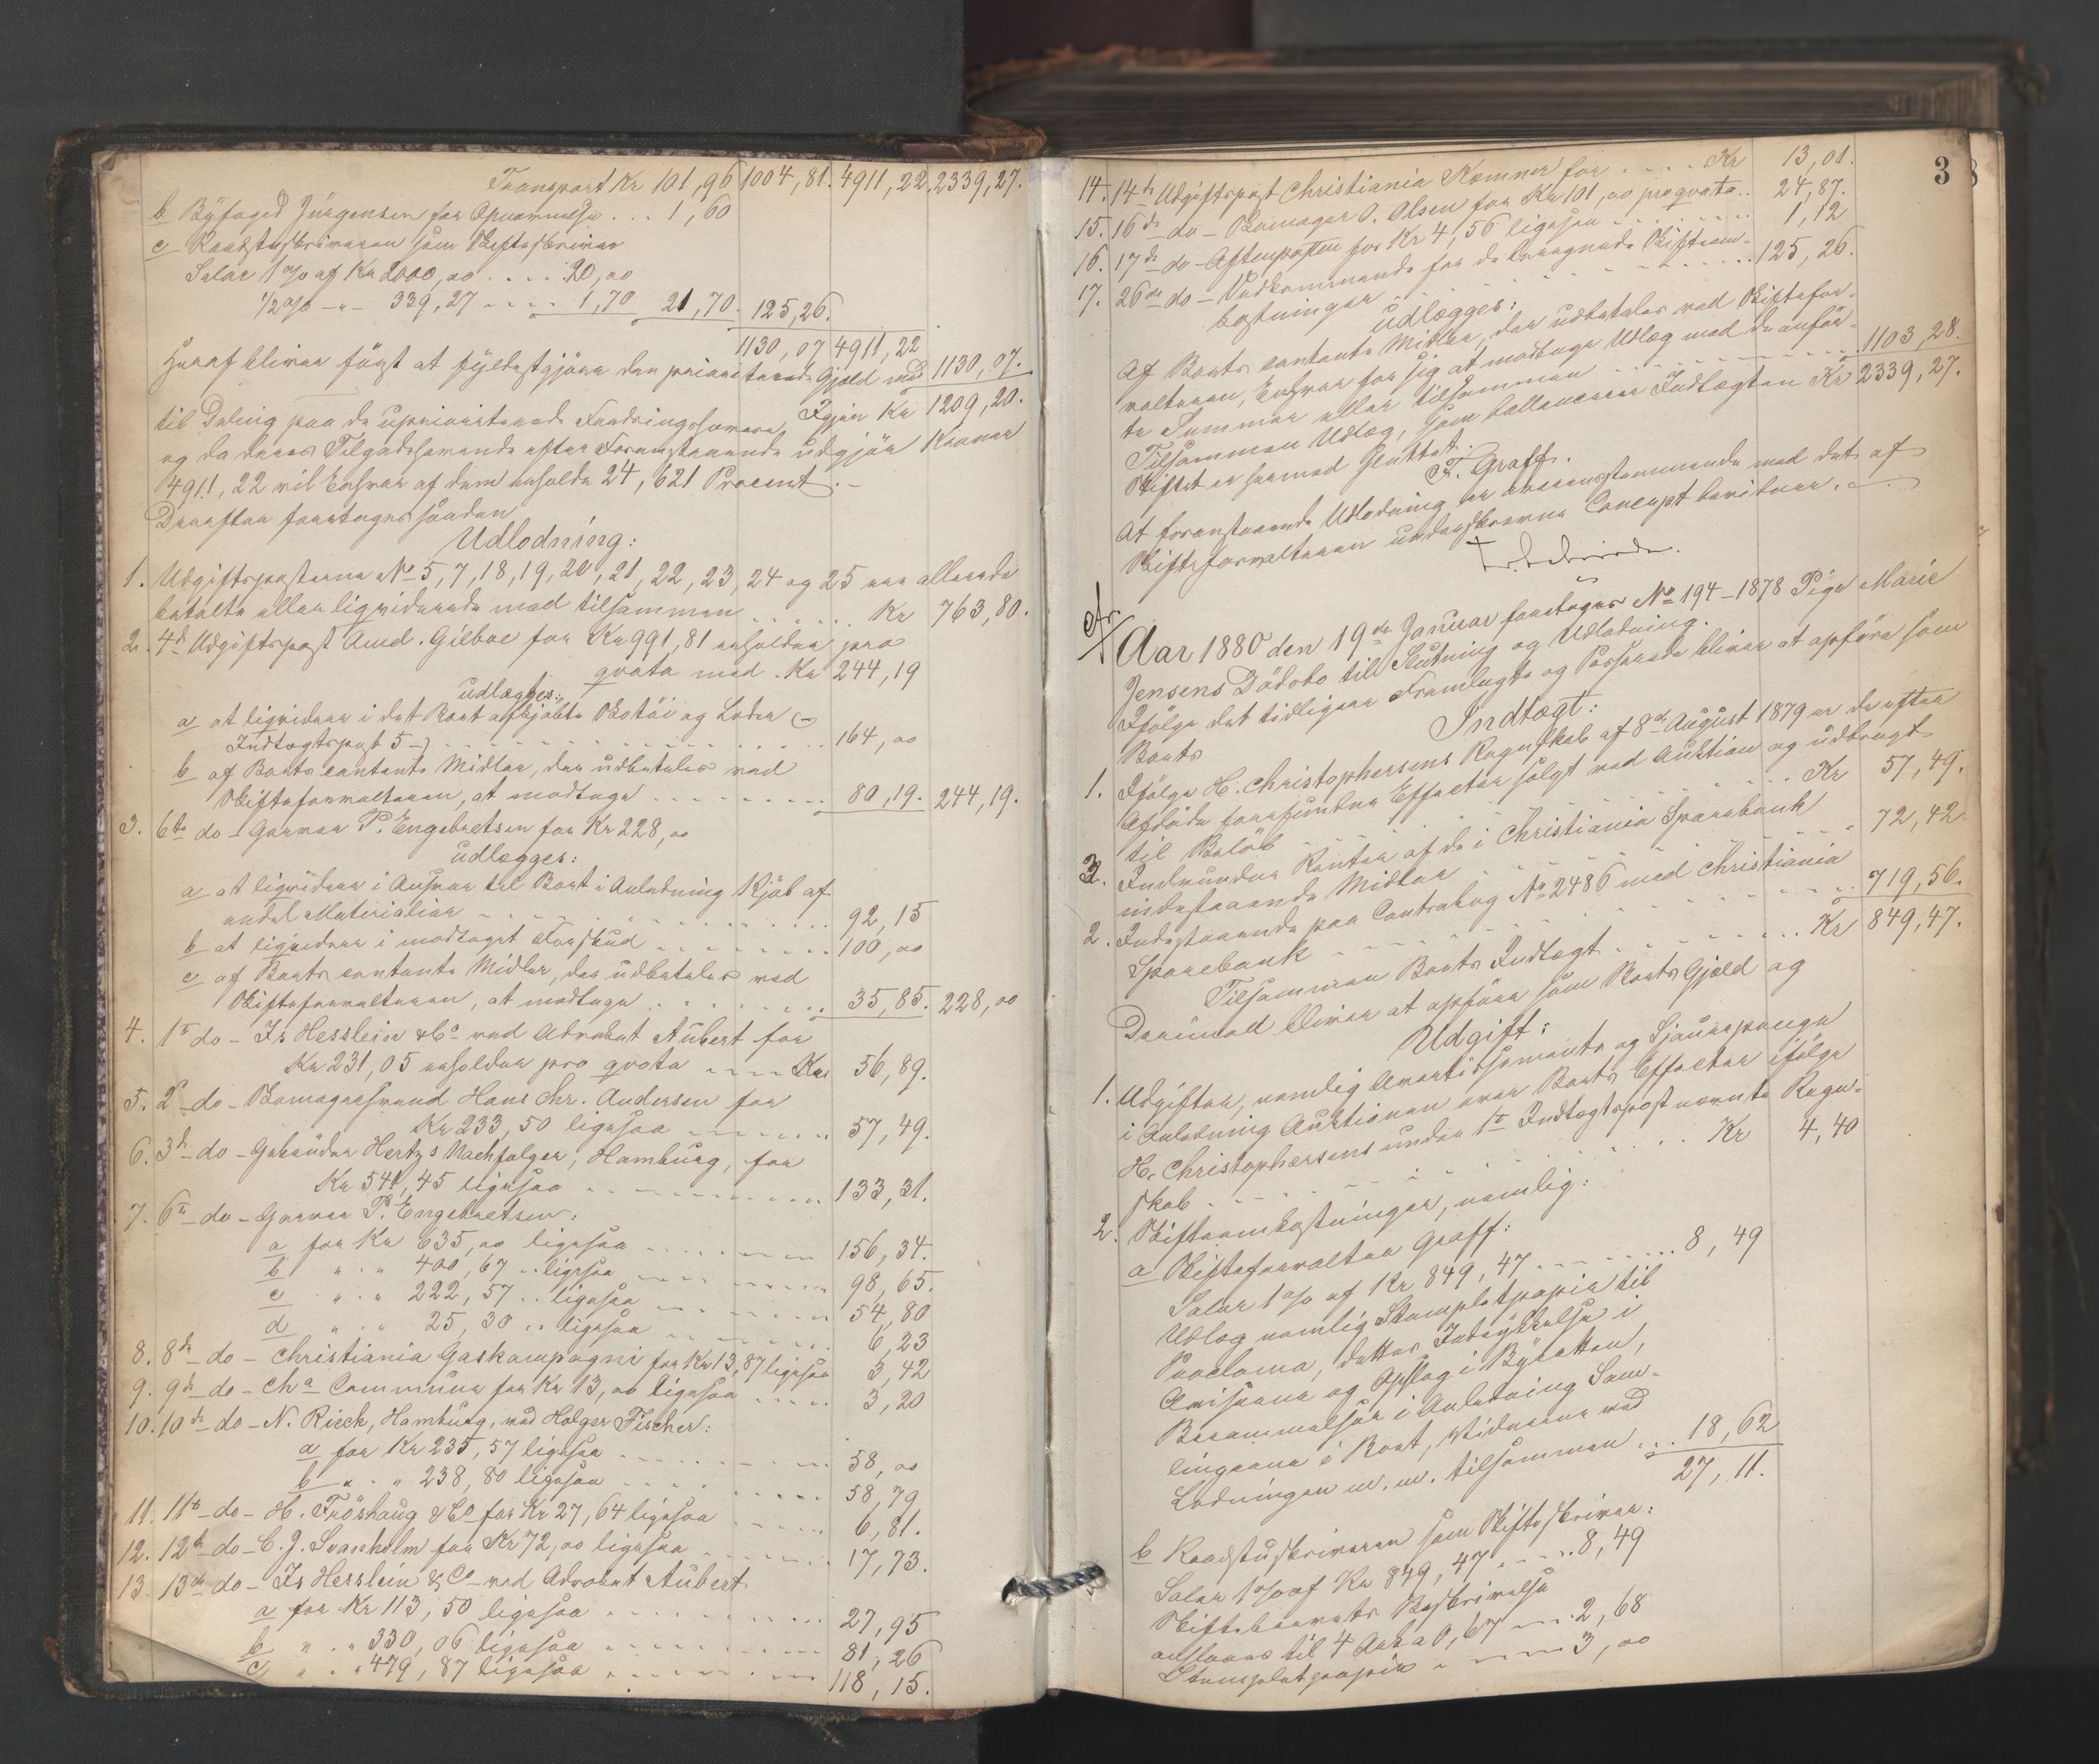 Transport Kr 101,96 1004,81. 4911,22. 2339,27.
b Byfoged Jürgensen for Opnævnelse . . . 1,60
c Raadstuskriveren som Skifteskriver
Salær 1 % af Kr 2000,00 . . . . 20,00
1/2 % -"- 339,27 . . . . 1,70 21,70. 125,26.
1130,07 4911,22
Heraf bliver først at fyldestgjøre den prioriterede Gjæld med 1130,07.
Igjen Kr 1209,20.
til Deling paa de uprioriterede Fordringshavere,
og da deres Tilgodehavende efter Foranstaaende udgjør Kroner
4911,22 vil Enhver af dem erholde 24,621 Procent. -
Derefter foretages saadan
Udlodning:
1. Udgiftsposterne No 5, 7, 18, 19, 20, 21, 22, 23, 24 og 25 ere allerede
betalte eller liqviderede med tilsammen . . . . . . Kr 763,80.
2. 4d Udgiftspost Amd. Gilboe for Kr 991,81 erholder pro
qvota med . Kr 244,19
udlægges:
a at liqvidere i det Boet afkjøbte Skotøi og Læder (-
Indtægtspost 5 -) . . . . . . . . . . 164,00
b af Boets contante Midler, der udbetales ved
Skifteforvalteren, at modtage . . . . . . . . 80,19. 244,19.
3. 6te do - Garver P. Engebretsen for Kr 228,00
udlægges:
a at liqvidere i Ansvar til Boet i Anledning Kjøb af
endel Materialier . . . . . . . . . . 92,15
b at liqvidere i modtaget Forskud . . . . . . . 100,00
c af Boets contante Midler, der udbetales ved
Skifteforvalteren, at modtage . . . . . . . 35,85. 228,00
4. 1te do - Is Hesslein & Co ved Advokat Aubert for
Kr 231,05 erholder pro qvota . . . . Kr 56,89.
5. 2d do - Skomagersvend Hans Chr. Andersen for
Kr 233,50 ligesaa . . . . . . 57,49.
6. 3d do - Gebrüder Hertzs Nachfolger, Hamburg, for
Kr 541,45 ligesaa . . . . . . . . 133,31.
7. 6te do - Garver P. Engebretsen:
a for Kr 635,00 ligesaa . . . . . . . 156,34.
b " . " 400,67 . . ligesaa . . . . . . . 98,65.
c " . " 222,57 . . ligesaa . . . . . . . 54,80
d " . " 25,30 . . ligesaa . . . . . . . 6,23
8. 8de do - Christiania Gaskompagni for Kr 13,87 ligesaa 3,42
9. 9de do - Cha Commune for Kr 13,00 ligesaa . . . . . 3,20
10. 10de do - N. Rieck, Hamburg, ved Holger Fischer:
a for Kr 235,57 ligesaa . . . . . . . 58,00
b " . " 238,80 ligesaa . . . . . . . 58,79
11. 11te do - H. Fröshaug & Co for Kr 27,64 ligesaa . . . . . 6,81.
12. 12te do - C. J. Svanholm for Kr 72,00 ligesaa . . . . . 17,73.
13. 13de do - Is Hesslein & Co - ved Advokat Aubert
a for Kr 113,50 ligesaa . . . . . . . 27,95
b " . " 330,06 ligesaa . . . . . . . 81,26
c " . " 479,87 ligesaa . . . . . . . 118,15.
3
14. 14de Udgiftspost Christiania Kæmner for . . . . Kr 13,01.
15. 16de do - Skomager O. Olsen for Kr 101,00 pro qvota . . 24,87.
16. 17de do - Aftenposten for Kr 4,56 ligesaa . . . . . . 1,12
17. 26de do - Vedkommende for de beregnede Skifteom-
kostninger . . . . . . . . . . . 125,26.
udlægges:
Af Boets contante Midler, der udbetales ved Skiftefor-
valteren, Enhver for sig at modtage Udlæg med de anför-
te Summer eller tilsammen . . . . . . . . . 1103,28.
Tilsammen Udlæg, som ballancerer Indtægten Kr 2339,27.
Skiftet er hermed sluttet.
F. Graff.
At foranstaaende Udlodning er overensstemmende med det af
Skifteforvalteren underskrevne Concept bevidner.
Aar 1880 den 19de Januar foretoges No 194 - 1878 Pige Marie
Jensens Dödsbo til Slutning og Udlodning.
Ifölge det tidligere Fremlagte og Passerede bliver at opföre som
Boets
Indtægt:
1. Ifölge H. Christophersens Regnskab af 8de August 1879 er de efter
Afdöde forefundne Effecter solgt ved Auktion og udbragt
til Belöb . . . . . . . . . . . . Kr 57,49.
2. Indvundne Renter af de i Christiania Sparebank
indestaaende Midler . . . . . . . . . . 72,42.
2. Indestaaende paa Contrabog No 2486 med Christiania
Sparebank . . . . . . . . . . . 719,56.
Tilsammen Boets Indtægt . . . . . . . . Kr 849,47.
Derimod bliver at opföre som Boets Gjæld og
Udgift:
1. Udgifter, nemlig Avertissements og Sjauerpenge
i Anledning Auktionen over Boets Effecter ifölge
H. Christophersens under 1te Indtægtspost nævnte Regn-
skab . . . . . . . . . . . . Kr 4,40
2. Skifteomkostninger, nemlig:
a Skifteforvalter Graff:
Salær 1 % af Kr 849,47 . . . . . . . 8,49
Udlæg nemlig Stempletpapir til
Proclama, dettes Indrykkelse i
Aviserne og Opslag i Byretten,
Berammelser i Anledning Sam-
lingerne i Boet, Vidnerne ved
Lodningen m. m. tilsammen . . . 18,62
27,11.
b Raadstuskriveren som Skifteskriver:
Salær 1 % af Kr 849,47 . . . . 8,49
Skiftebrevets Beskrivelse
anslaaes til 4 Ark a 0,67 . . . 2,68
Stempletpapir . . . . . 3,00